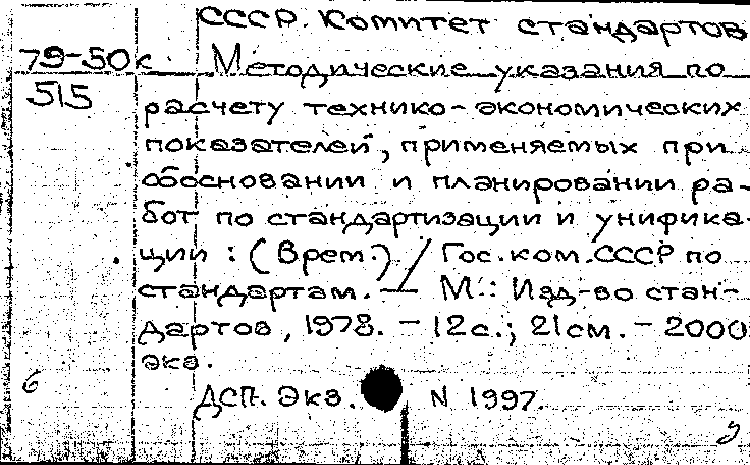 СССР. Комитет стандартов
79-50к Методические указания по
515 расчету технико-экономических
показателей, применяемых при
обосновании и планировании ра-
бот по стандартизации и унифика-
ции : (Врем.) / Гос. ком. СССР по
стандартам. — М.: Изд-во стан-
дартов, 1978. - 12с.; 21см. - 2000
экз.
6
ДСП. Экз. N 1997.